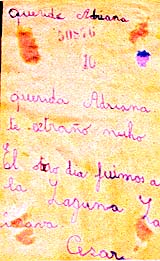 querida Adriana
50876
16
querida Adriana
te extraño mucho
El otro dia fuimos a
la Laguna La
Cesar